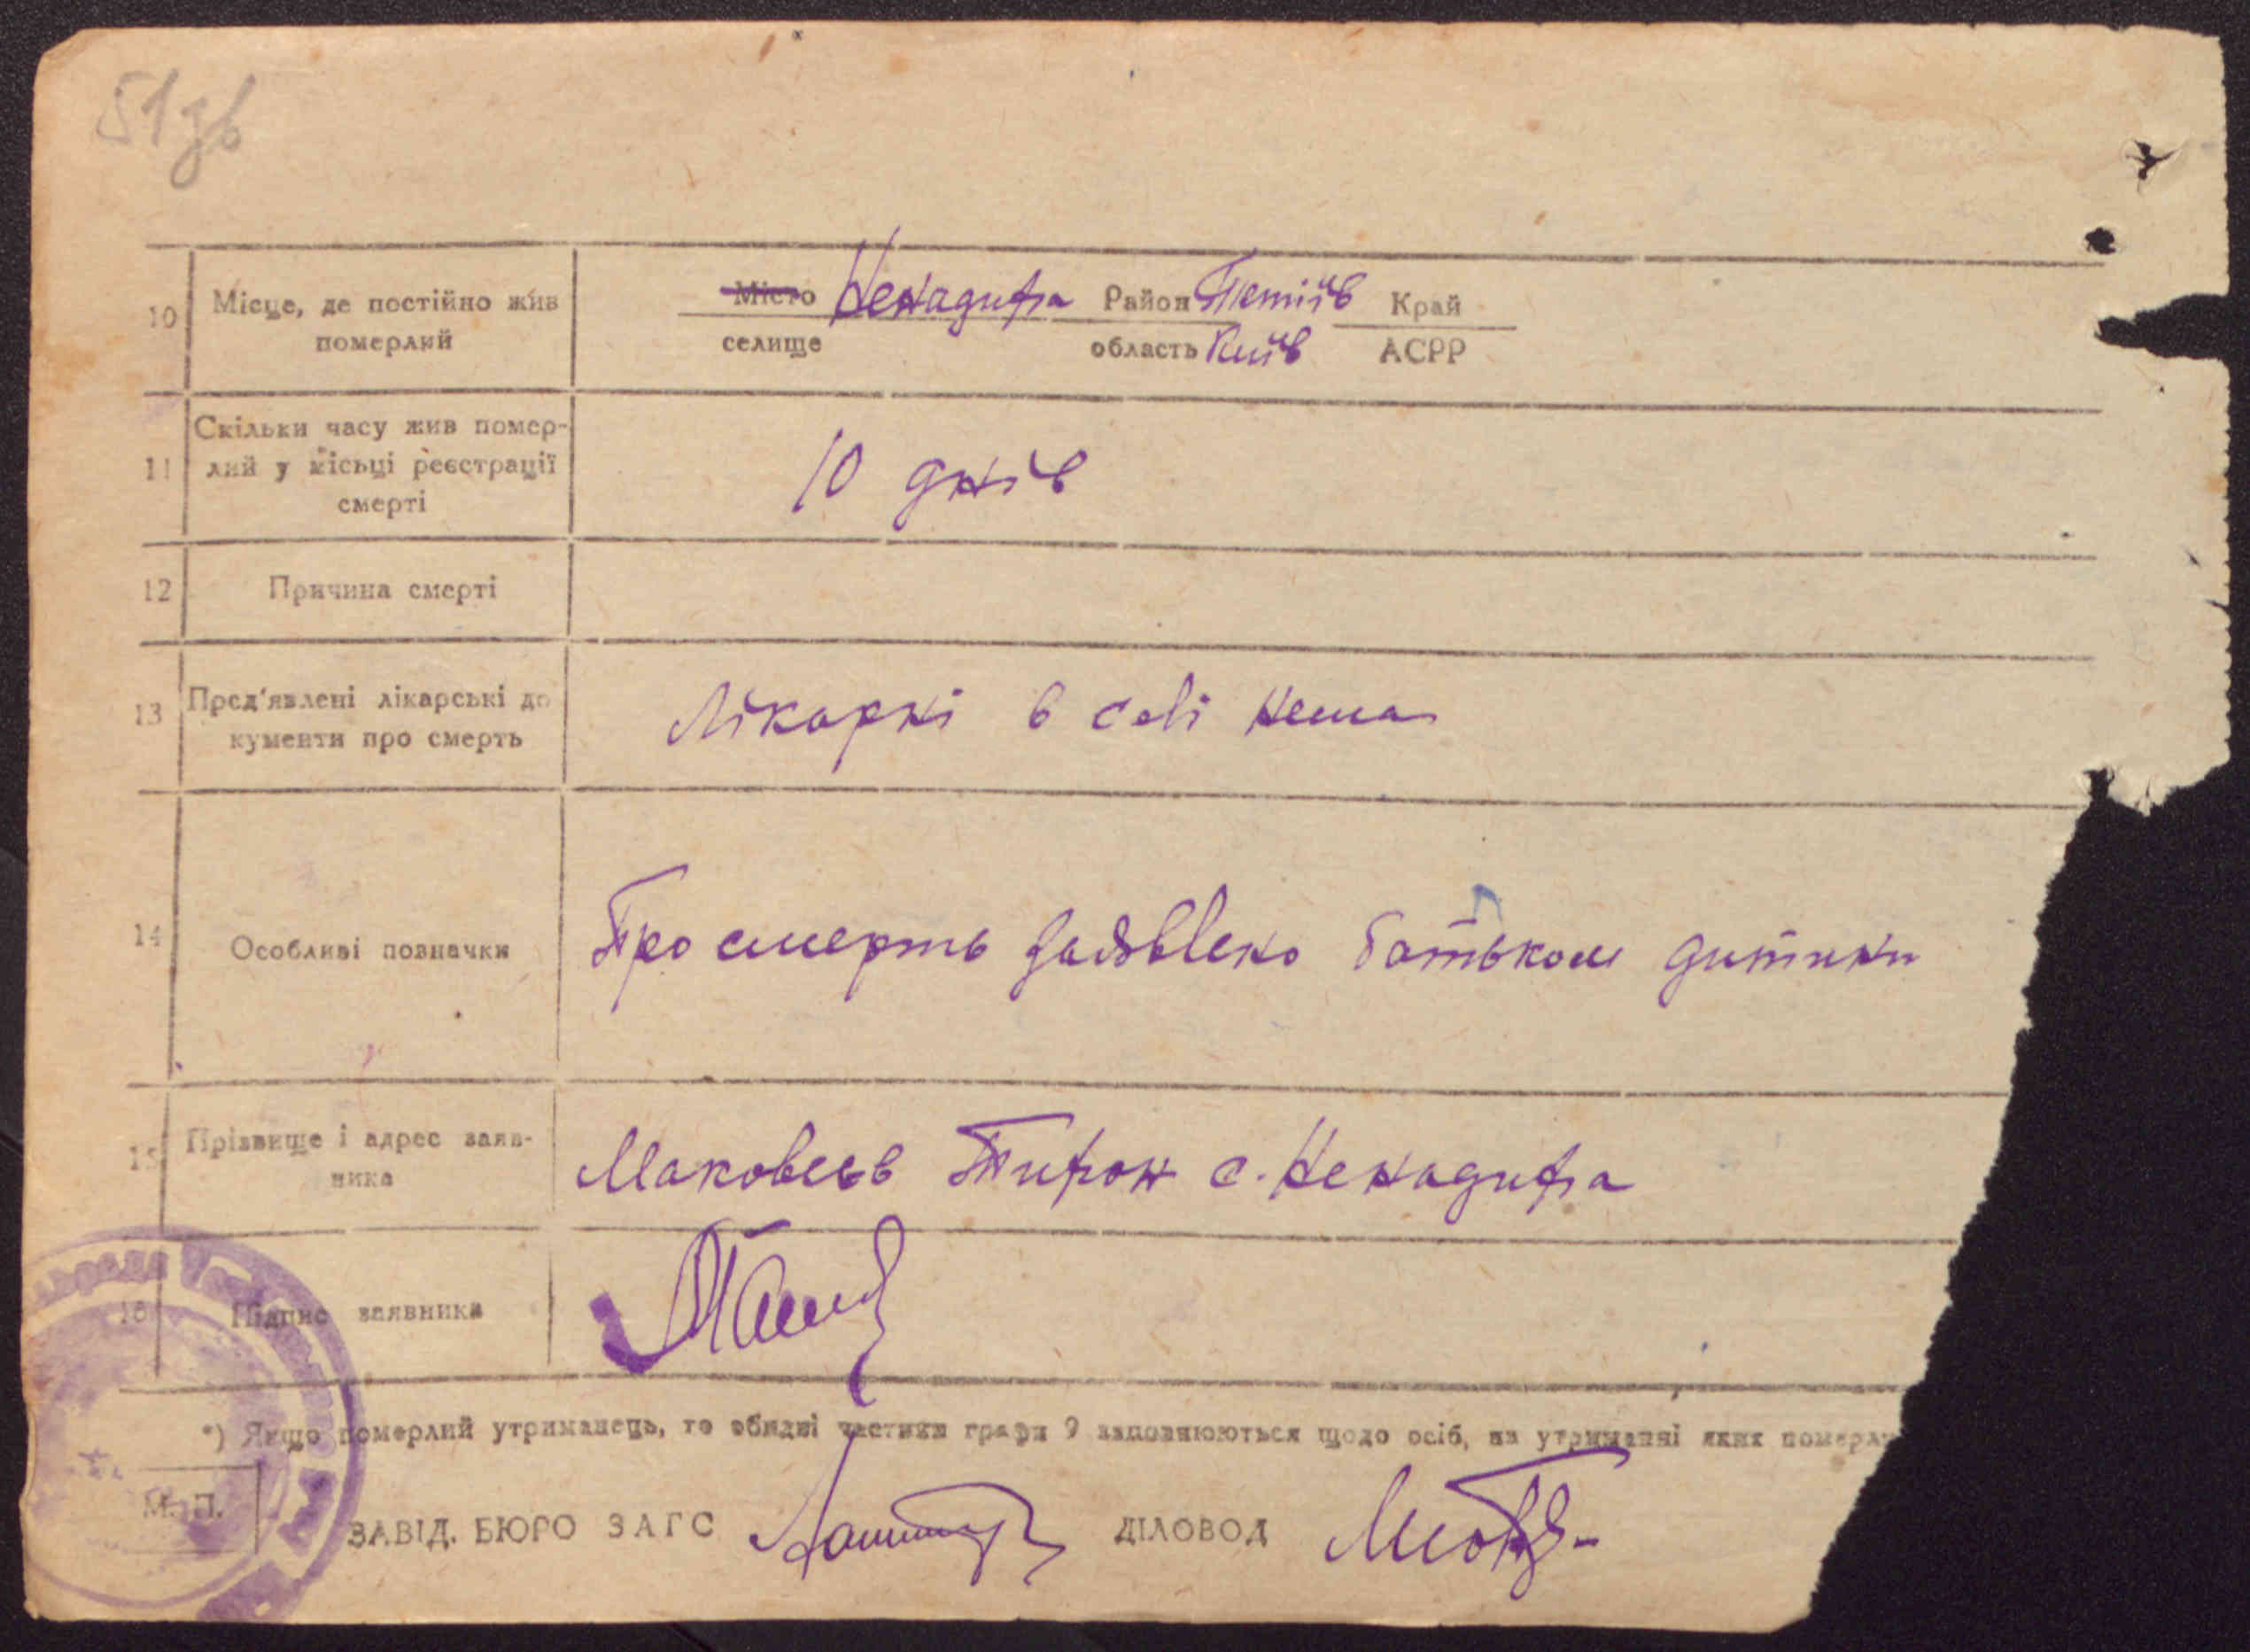 51зв
10 Місце, де постійно жив померлий
Місто Ненадиха Район Тетіїв Край
селище область Київ АСРР
11 Скільки часу жив помер-
лий у місьці реєстрації
смерті
10 днів
12 Причина смерті
13 Пред'явлені лікарські до
кументи про смерть
Лікарні в селі нема
14 Особливі позначки
Про смерть заявлено батьком дитини
15 Прізвище і адрес заяв-
ника
Маковеєв с. Ненадиха
16 Підпис заявника
*) Якщо померлий утриманець, то обидві частини графи 9 заповнюються щодо осіб, на утриманні яких помер
М. П.
ЗАВІД. БЮРО ЗАГС ДІЛОВОД